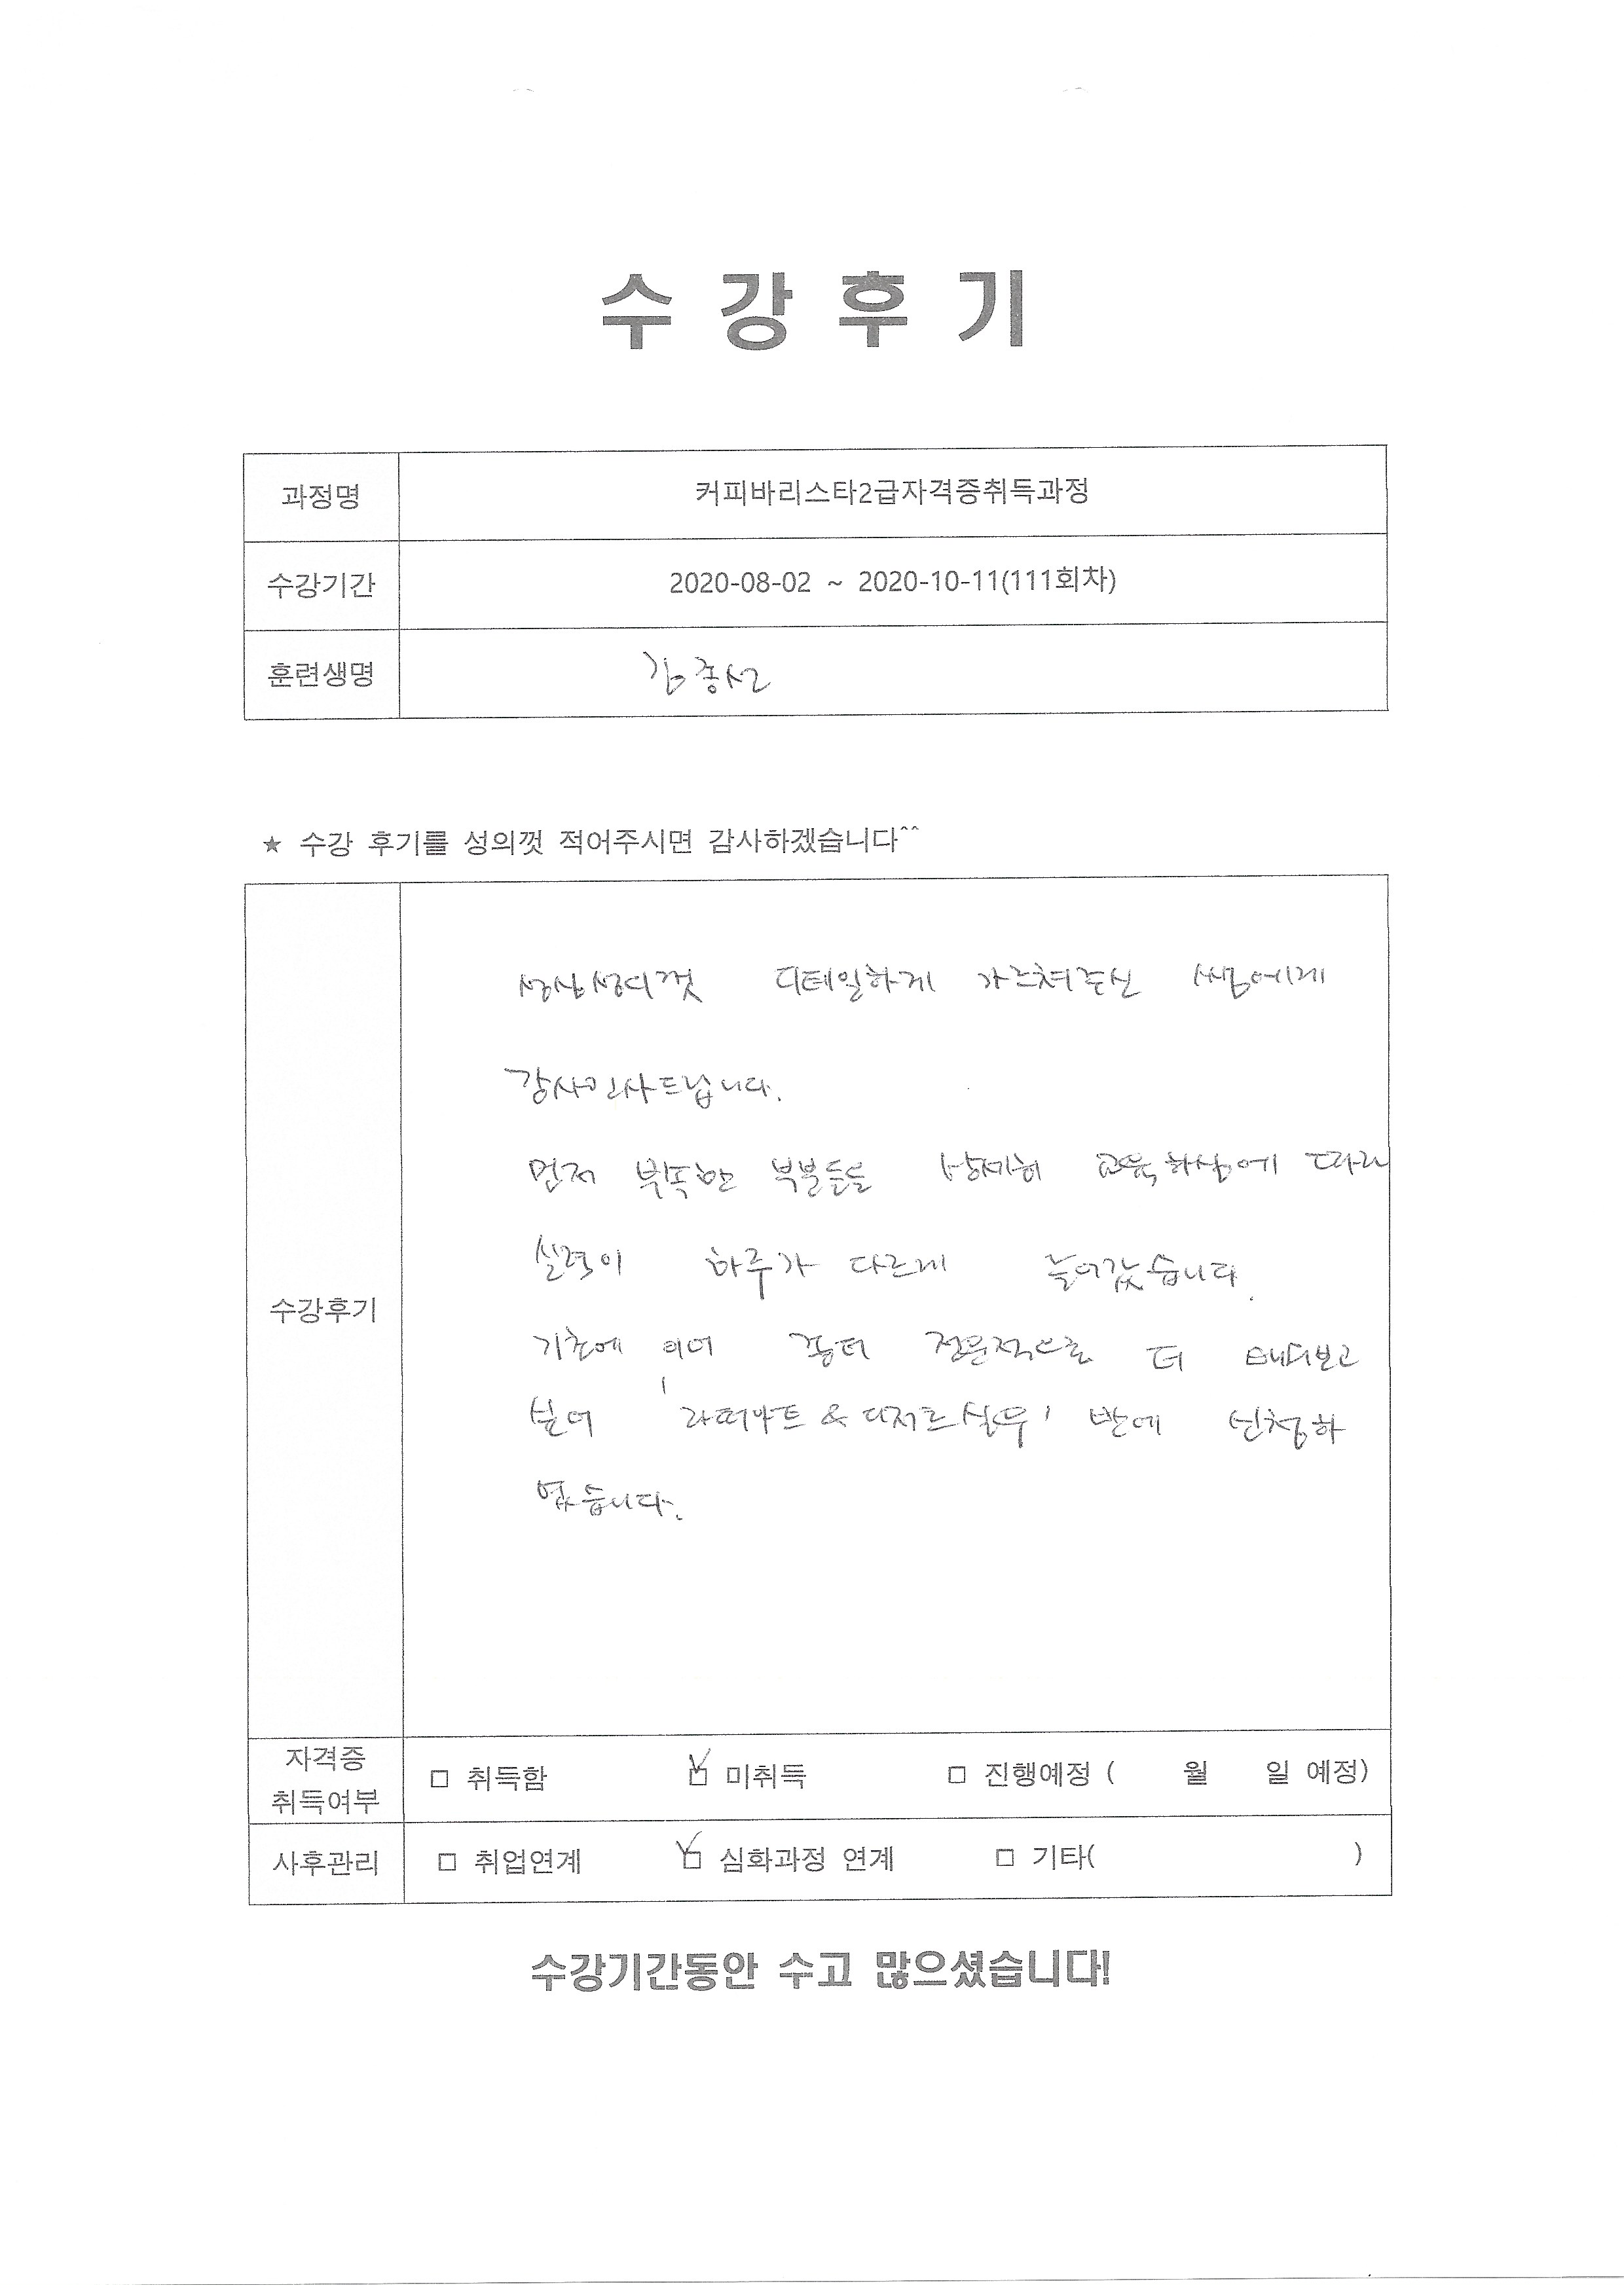 수 강 후 기
과정명 커피바리스타2급자격증취득과정
수강기간 2020-08-02 ~ 2020-10-11(111회차)
훈련생명 김종선
★ 수강 후기를 성의껏 적어주시면 감사하겠습니다^^
수강후기
성심성의껏 디테일하게 가르쳐주신 쌤에게
감사인사드립니다.
먼저 부족한 부분들을 교육하심에 따라
실력이 하루가 다르게 늘어갔습니다.
기초에 이어 좀더 전문적으로 더 배워보고
싶어 '라떼아트 & 디저트실무' 반에 신청하
였습니다.
자격증
취득여부
□ 취득함 ☑ 미취득 □ 진행예정 ( 월 일 예정)
사후관리 □ 취업연계 ☑ 심화과정 연계 □ 기타( )
수강기간동안 수고 많으셨습니다!